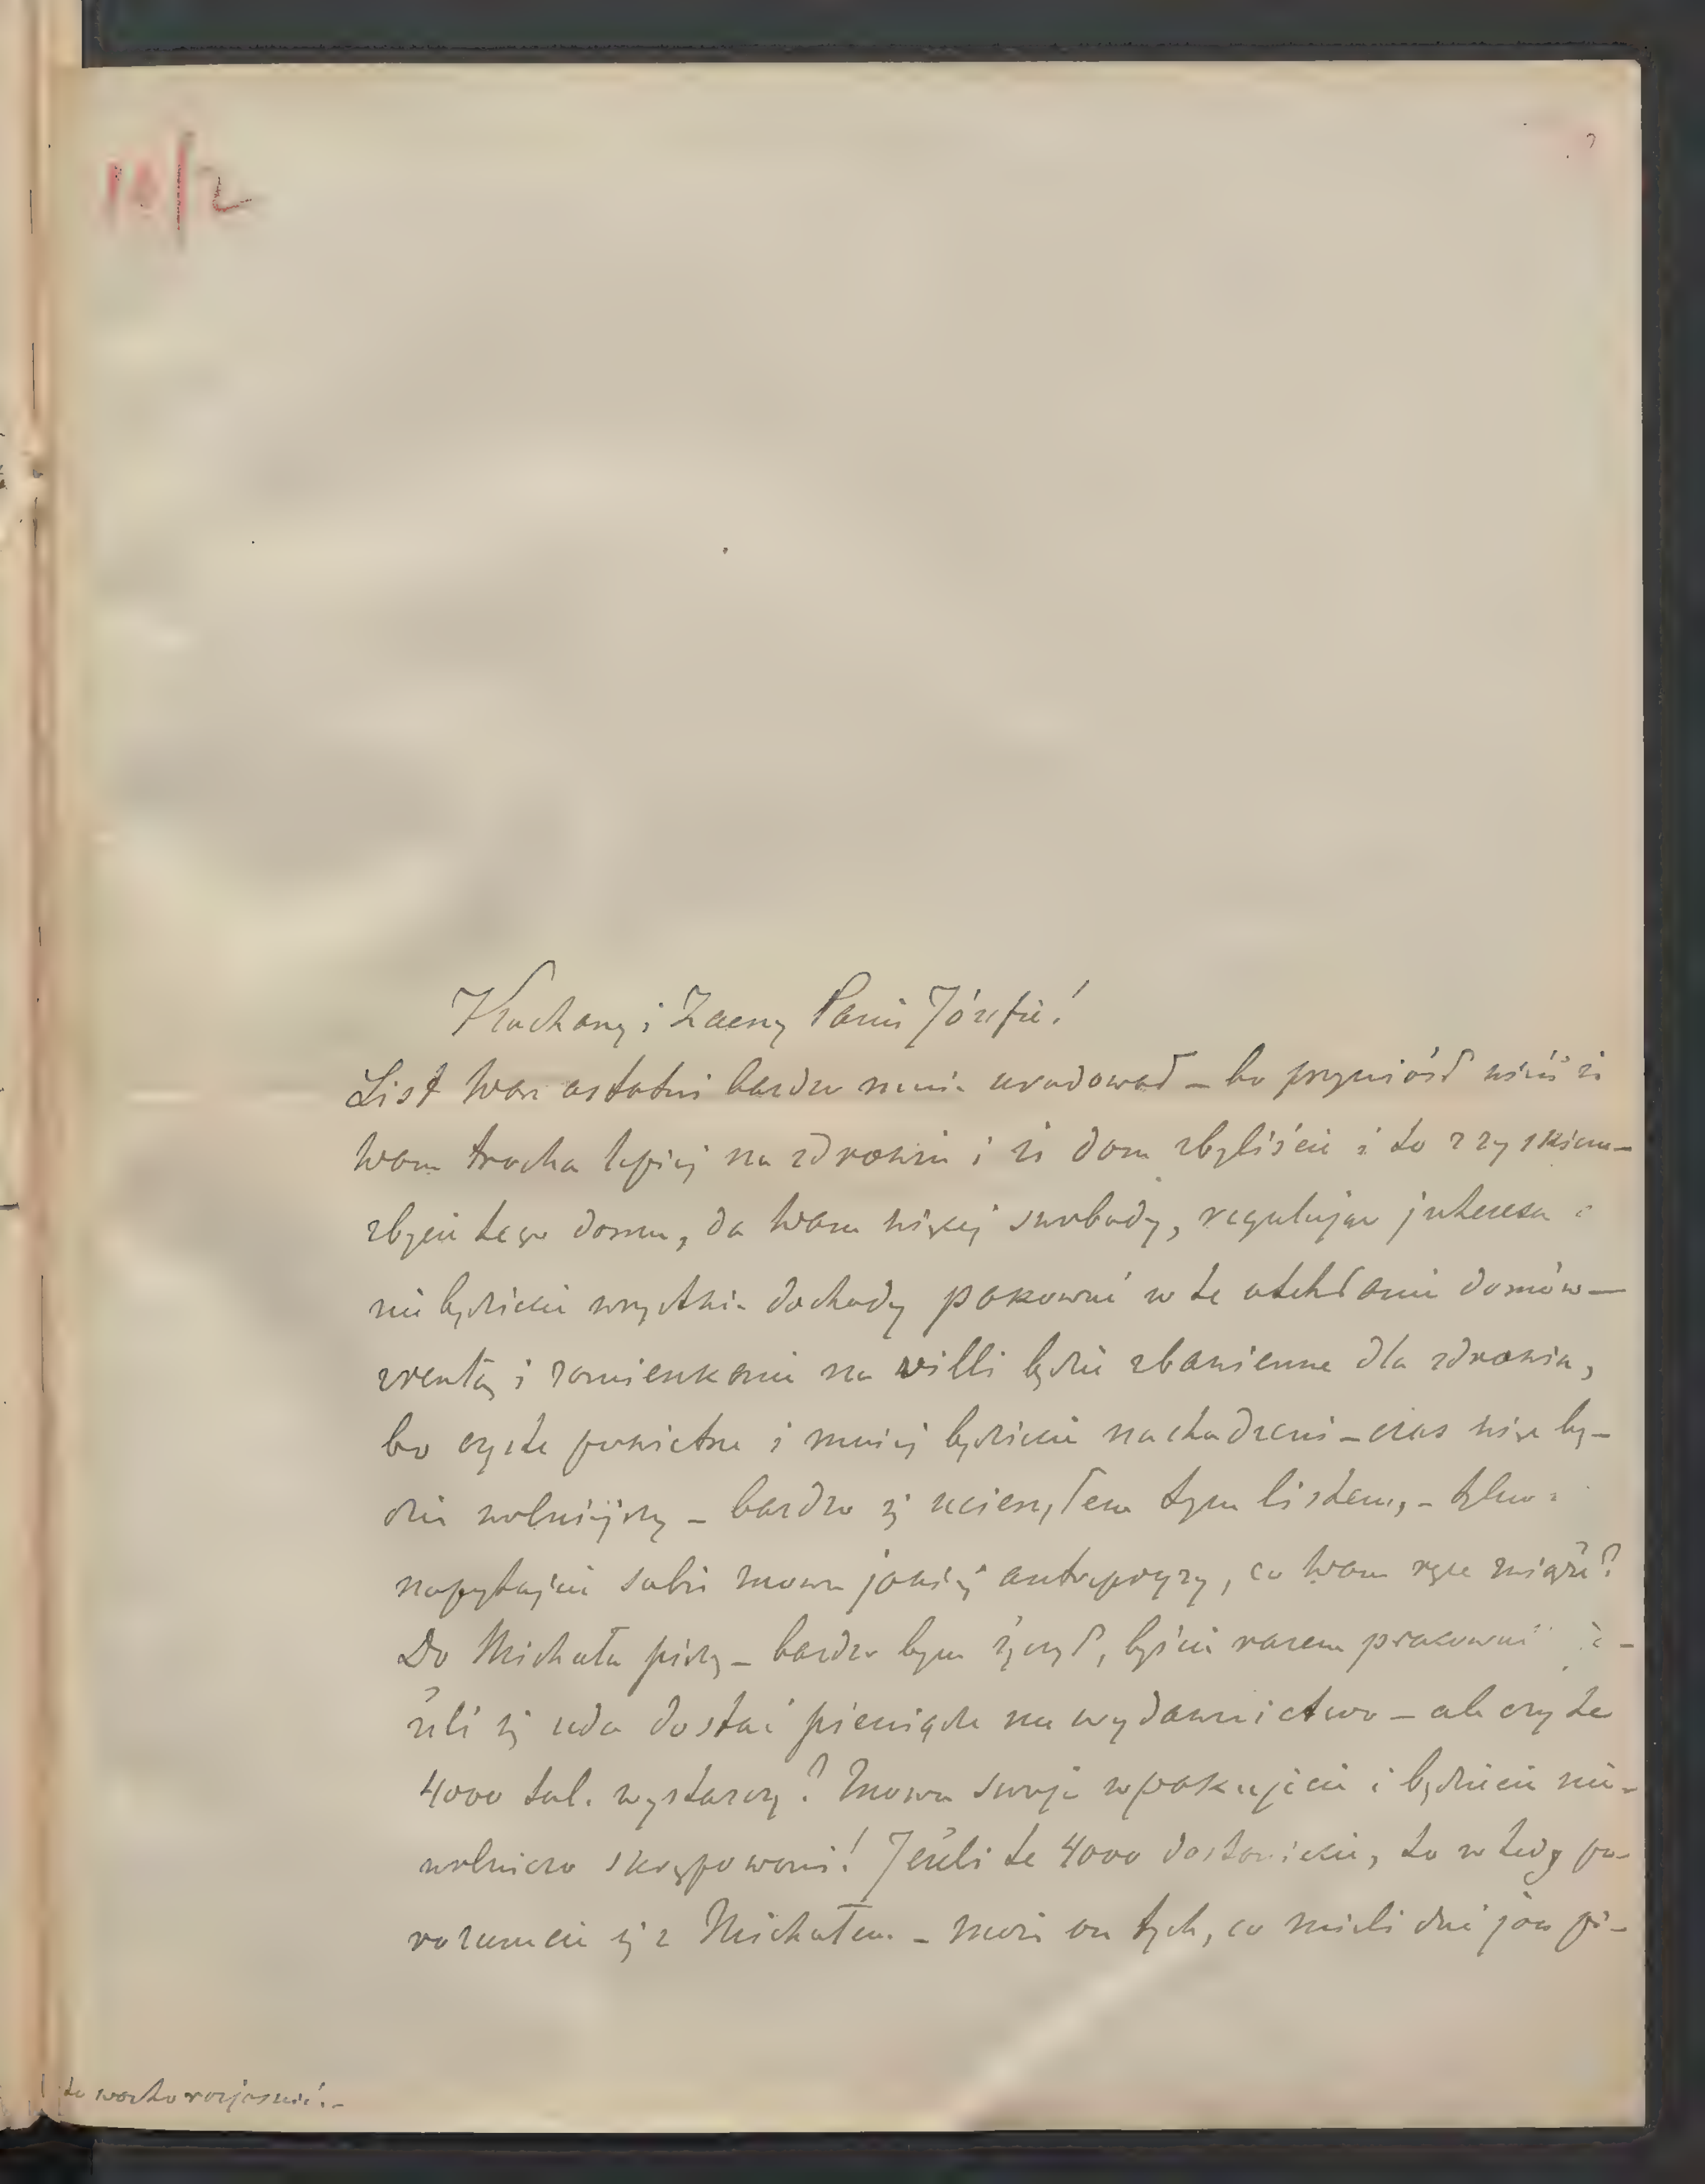 10/2
Kochany i Zacny Panie Józefie!
List Wasz ostatni bardzo mnie uradował – bo przyniósł wieść że
Wam trocha lepiej na zdrowiu i że dom zbyliście i to z zyskiem –
zbycie tego domu, da Wam więcej swobody, reguluje interesa i
nie będziecie wszystkie dochody pakować w te otchłanie domów –
zresztą i zamieszkanie na willi będzie zbawienne dla zdrowia,
bo czyste powietrze i mniej będziecie nachodzeni – czas więc bę-
dzie wolniejszy – bardzo się ucieszyłem tym listem, – tylko
napytajcie sobie znowu jakiej antrepryzy, co Wam ręce zwiąże?
Do Michała piszę – bardzo bym życzył, byście razem pracowali je-
żeli się uda dostać pieniądze na wydawnictwo – ale czy te
4000 tal. wystarczy? Znowu swoje wpakujecie i będziecie nie-
wolniczo skrępowani! Jeżeli te 4000 dostaniecie, to wtedy po-
rozumcie się z Michałem – może on tych, co mieli dać jak pi-
to warto rozjaśnić. –